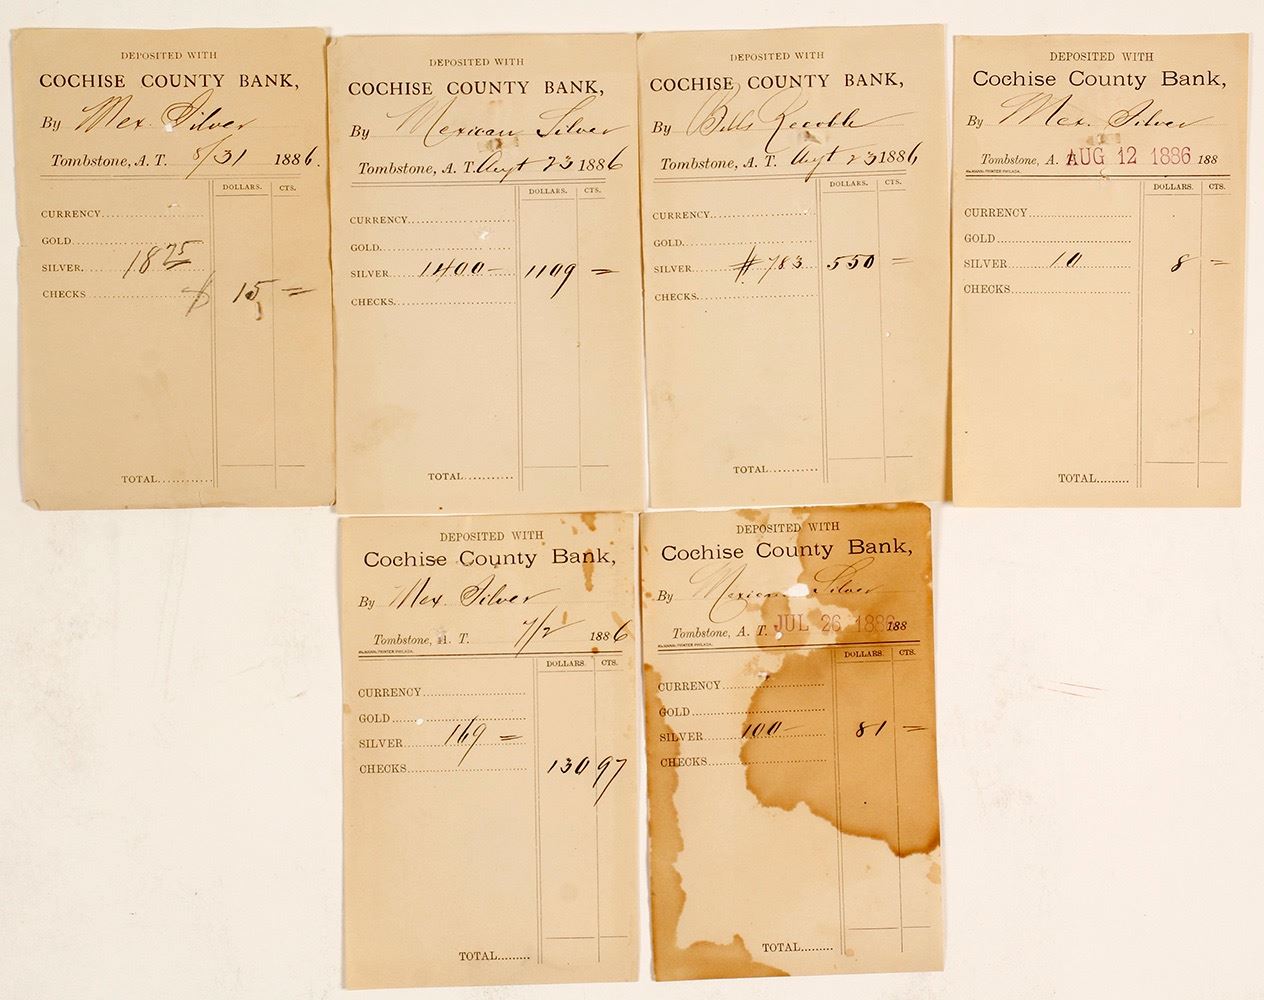 DEPOSITED WITH
COCHISE COUNTY BANK,
By Mex. Silver
Tombstone, A. T. 8/31 1886.
DOLLARS. CTS.
CURRENCY
GOLD
SILVER. 18 75
CHECKS $ 15 =
TOTAL
DEPOSITED WITH
COCHISE COUNTY BANK,
By Mexican Silver
Tombstone, A. T. Augt 23 1886
DOLLARS. CTS.
CURRENCY
GOLD
SILVER 1400– 1109 =
CHECKS
TOTAL
DEPOSITED WITH
COCHISE COUNTY BANK,
By Bills
Tombstone, A. T. Augt 23 1886
DOLLARS. CTS.
CURRENCY
GOLD
SILVER #783 550 =
CHECKS
TOTAL
DEPOSITED WITH
Cochise County Bank,
By Mex. Silver
Tombstone, A. AUG 12 1886 188
DOLLARS. CTS.
CURRENCY
GOLD
SILVER 10 8 =
CHECKS
TOTAL
DEPOSITED WITH
Cochise County Bank,
By Mex. Silver
Tombstone, A. T. 7/2 1886
DOLLARS. CTS.
CURRENCY
GOLD
SILVER 169 =
CHECKS 130 97
TOTAL
DEPOSITED WITH
Cochise County Bank,
By Mexican Silver
Tombstone, A. T. JUL 26 1886 188
DOLLARS. CTS.
CURRENCY
GOLD
SILVER 100– 81 =
CHECKS
TOTAL